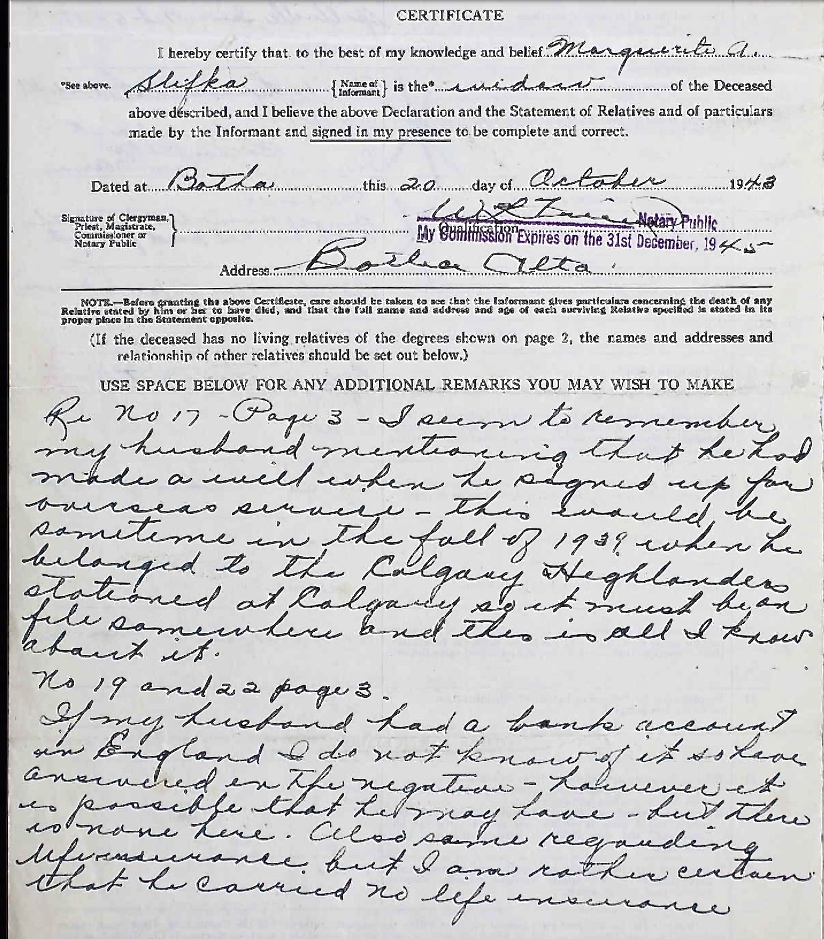 CERTIFICATE
I hereby certify that to the best of my knowledge and belief Marguerite A.
*See above. Slifka {Name of Informant} is the* widow of the Deceased
above described, and I believe the above Declaration and the Statement of Relatives and of particulars
made by the Informant and signed in my presence to be complete and correct.
Dated at Botha this 20 day of October 1943
Signature of Clergyman, Priest, Magistrate, Commissioner or Notary Public
Notary Public
Qualification
My Commission Expires on the 31st December, 1945
Address Botha Alta.
NOTE.—Before granting the above Certificate, care should be taken to see that the Informant gives particulars concerning the death of any
Relative stated by him or her to have died, and that the full name and address and age of each surviving Relative specified is stated in its
proper place in the Statement opposite.
(If the deceased has no living relatives of the degrees shown on page 2, the names and addresses and
relationship of other relatives should be set out below.)
USE SPACE BELOW FOR ANY ADDITIONAL REMARKS YOU MAY WISH TO MAKE
Re No 17 - Page 3 - I seem to remember
my husband mentioning that he had
made a will when he signed up for
overseas service - this would be
sometime in the fall of 1939 when he
belonged to the Calgary Highlanders
stationed at Calgary so it must be on
file somewhere and this is all I know
about it.
No 19 and 22 page 3.
If my husband had a bank account
in England I do not know of it so have
answered in the negative - however it
is possible that he may have - but there
is none here. Also same regarding
life insurance but I am rather certain
that he carried no life insurance